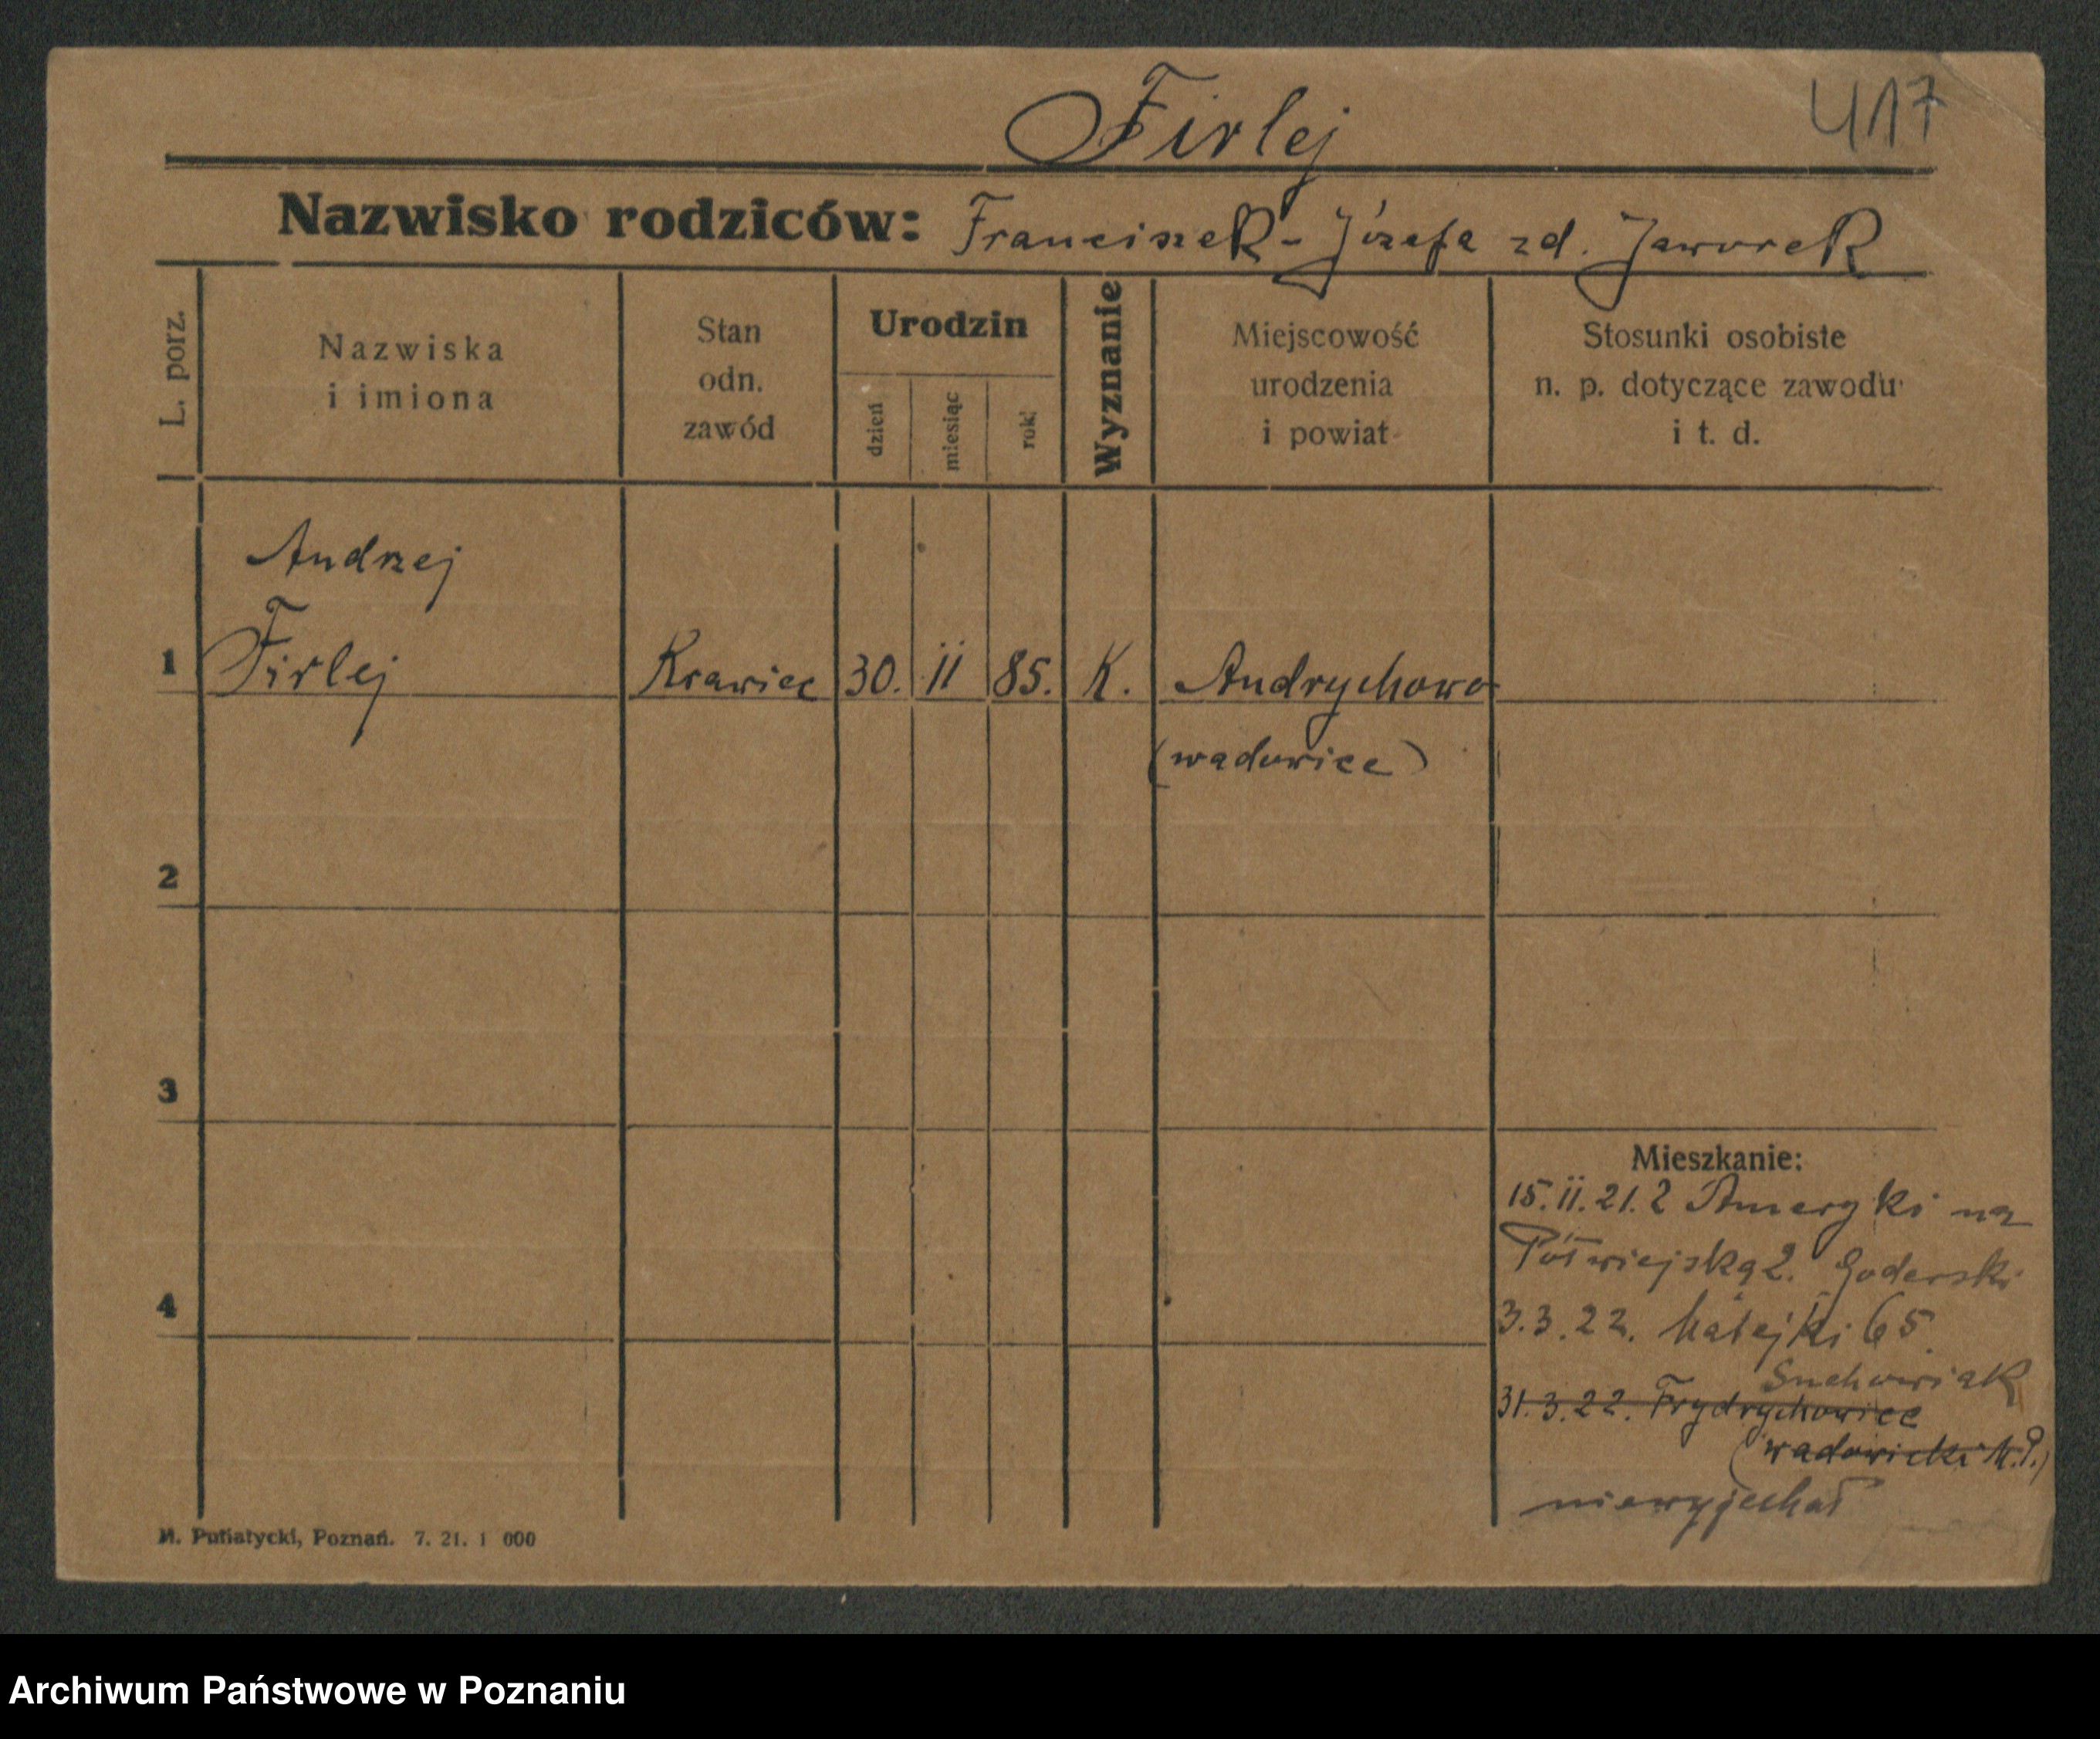 417
Firlej
Nazwisko rodziców: Franciszek - Józefa zd. Jaworek
L. porz.
Nazwiska
i imiona
Stan
odn.
zawód
Urodzin
dzień
miesiąc
rok
Wyznanie
Miejscowość
urodzenia
i powiat
Stosunki osobiste
n. p. dotyczące zawodu
i t. d.
Andrzej
1 Firlej Krawiec 30. 11 85. K. Andrychowo
(wadowice)
2
3
4
Mieszkanie:
15.11.21. Z Ameryki na
Półwiejską 2. Goderski
3.3.22. Matejki 65.
Suchowiak
31.3.22. Frydrychowice
(wadowicki M.P.)
niewyjechał
M. Putiatycki, Poznań. 7. 21. 1 000
Archiwum Państwowe w Poznaniu